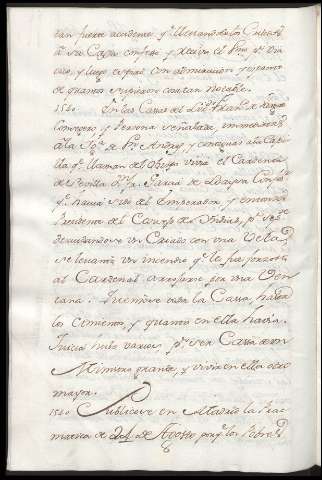 tan fuerte accidente, q.e llevandolo los Criados
á su Casa confeso, y recivio el
y luego espiró con admiracion, y espanto
de quantos supieron cosa tan notable.
1540 En las Casas del Liz.do Fran.co de Vargas
Consejero, y Persona señalada, inmediatas
á la Igl.a de S.n Andres, y contiguas á la Capi
lla q.e llaman del Obispo vivia el Cardenal
de Sevilla D.n Fr. Garcia de Loaysa Confesor
q.e havia sido del Emperador, y entonces
Presidente del Consejo de Indias, p.r
descuidandose un Criado con una Vela,
se levantó un incendio q.e le fue preciso
al Cardenal arrojarse por una Ven
tana: Quemose toda la Casa, hasta
los cimientos, y quanto en ella havia.
Juicios hubo varios, p.r ser Casa de un
Ministro grande, y vivir en ella otro
mayor.
1540 Publicose en Madrid la Prag
matica de 24 de Agosto para q.e los Pobres